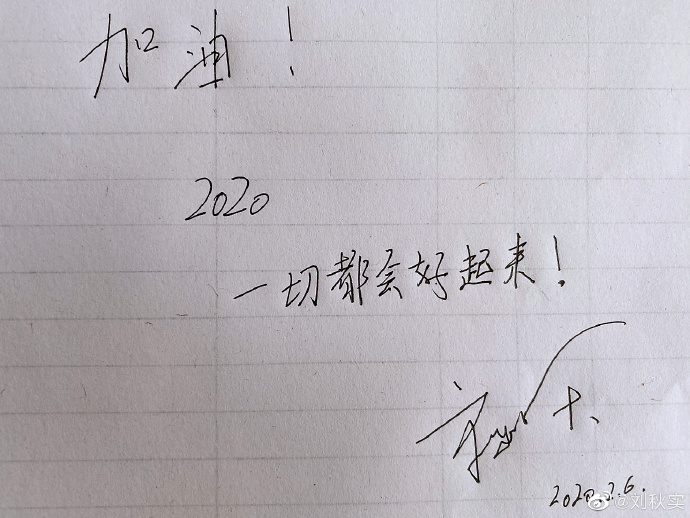 加油!
2020
一切都会好起来!
2020.2.6.
@刘秋实